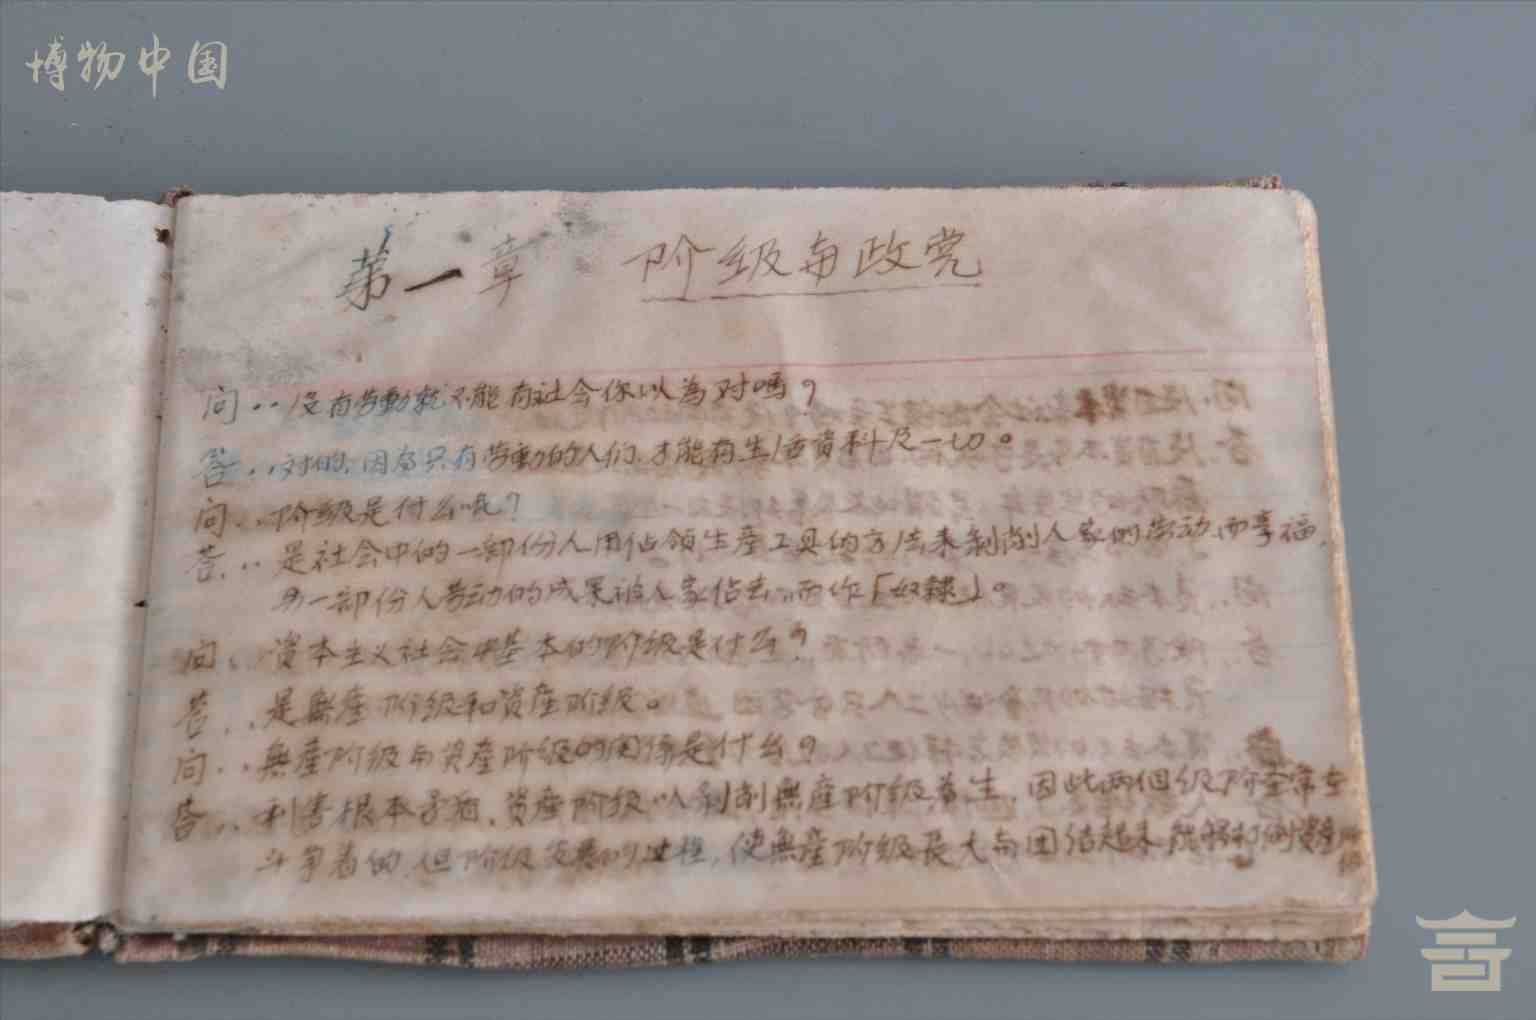 博物中国
第一章 阶级与政党
问..没有劳動就不能有社会你以为对嗎？
答..对的,因为只有劳動的人们,才能有生活資料及一切。
问..阶级是什么呢？
答..是社会中的一部份人用佔領生產工具的方法来剝削人家的劳动而享福,
另一部份人劳动的成果被人家佔去,而作「奴隸」。
问..資本主义社会中基本的阶级是什么？
答..是無產阶级和資產阶级。
问..無產阶级与資產阶级的関係是什么？
答..利害根本矛盾,資產阶级以剝削無產阶级為生,因此两個级阶全常在
斗争着的,但阶级發展的过程,使無產阶级長大与团结起来,能够打倒資產阶级